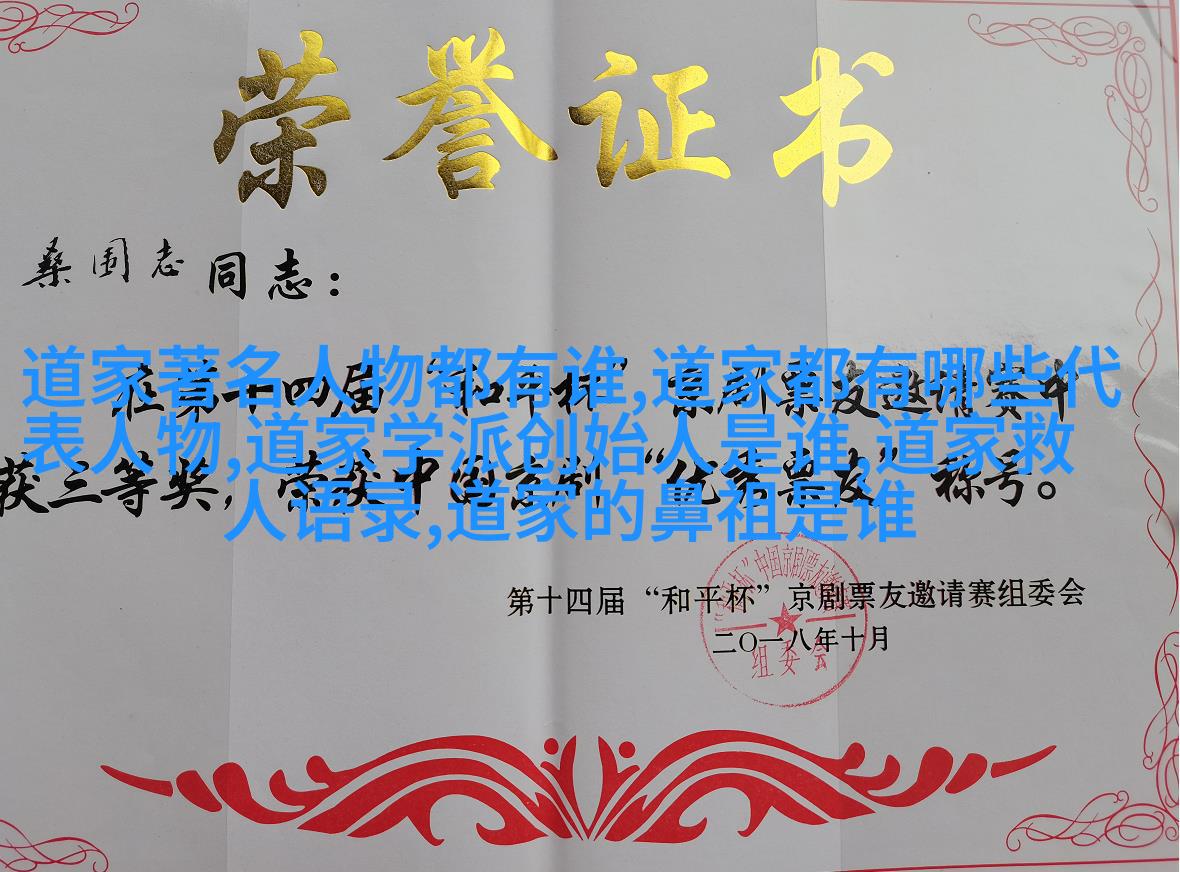 荣誉证书
同志：
道家著名人物都有谁,道家都有哪些代
表人物,道家学派创始人是谁,道家救
人语录,道家的鼻祖是谁
在第十四届“和平杯”京剧票友邀请赛中
获三等奖，荣获中国京剧“优秀票友”称号。
第十四届“和平杯”京剧票友邀请赛组委会
二〇一八年十月
组委会